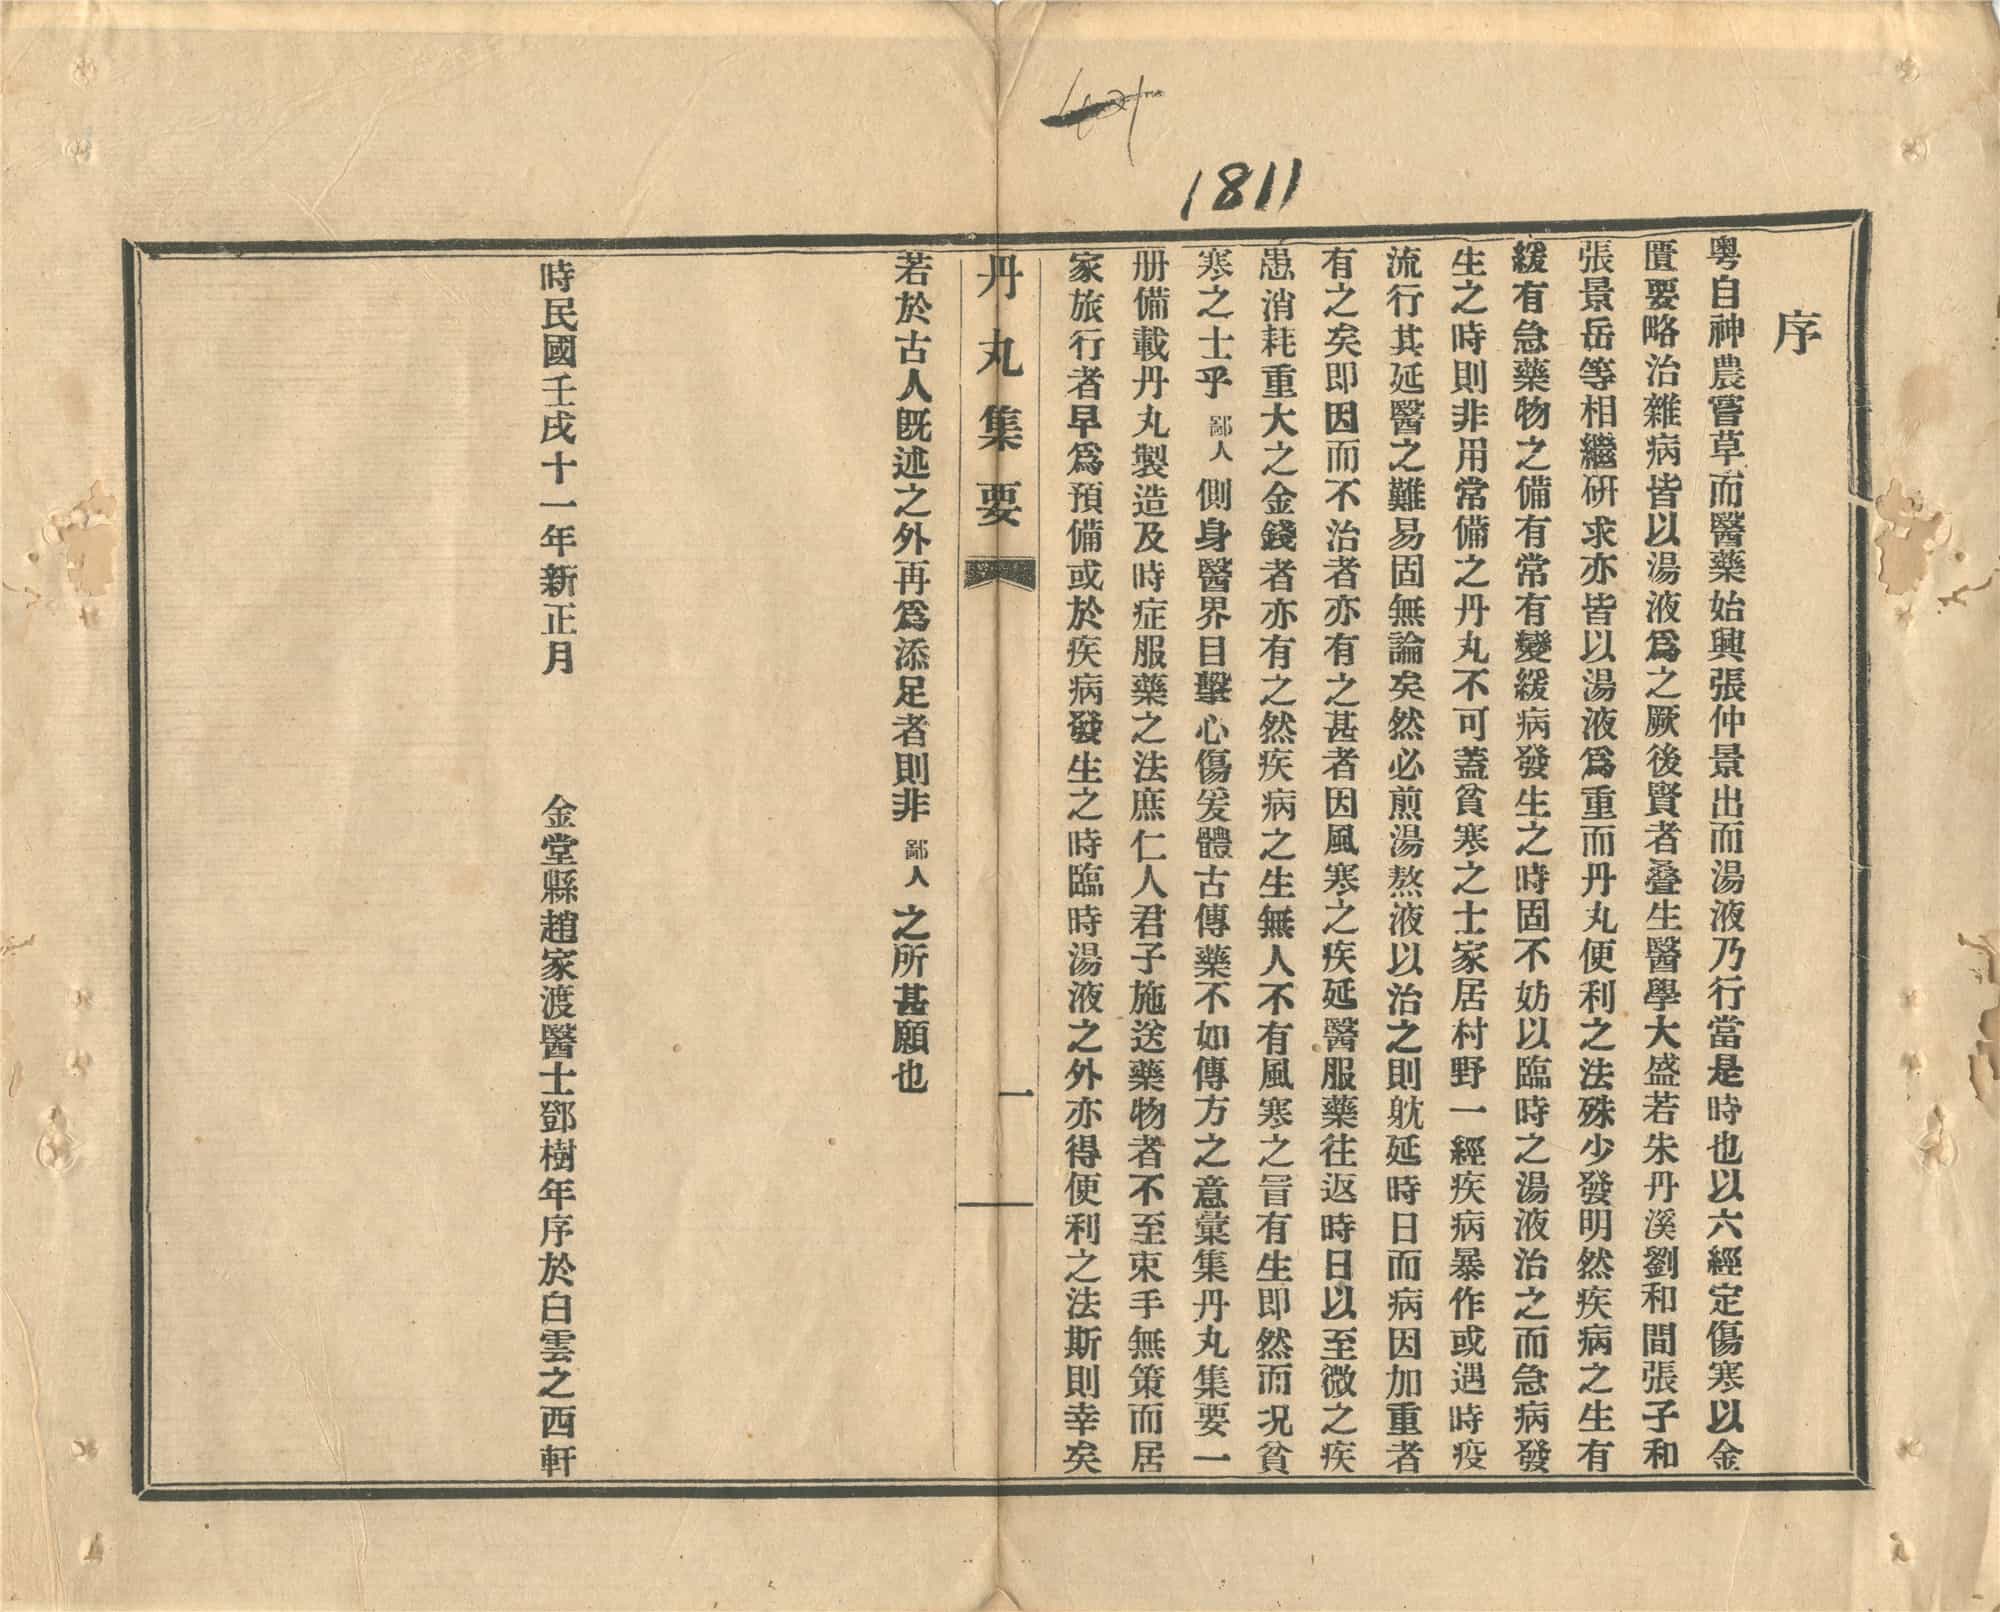 1811
序
粵自神農嘗草而醫藥始興張仲景出而湯液乃行當是時也以六經定傷寒以金
匱要略治雜病皆以湯液爲之厥後賢者叠生醫學大盛若朱丹溪劉和間張子和
張景岳等相繼研求亦皆以湯液爲重而丹丸便利之法殊少發明然疾病之生有
緩有急藥物之備有常有變緩病發生之時固不妨以臨時之湯液治之而急病發
生之時則非用常備之丹丸不可蓋貧寒之士家居村野一經疾病暴作或遇時疫
流行其延醫之難易固無論矣然必煎湯熬液以治之則躭延時日而病因加重者
有之矣即因而不治者亦有之甚者因風寒之疾延醫服藥往返時日以至微之疾
患消耗重大之金錢者亦有之然疾病之生無人不有風寒之冒有生即然而况貧
寒之士乎鄙人側身醫界目擊心傷爰體古傳藥不如傳方之意彙集丹丸集要一
册備載丹丸製造及時症服藥之法庶仁人君子施送藥物者不至束手無策而居
家旅行者早爲預備或於疾病發生之時臨時湯液之外亦得便利之法斯則幸矣
丹丸集要
一
若於古人既述之外再爲添足者則非鄙人之所甚願也
時民國壬戌十一年新正月 金堂縣趙家渡醫士鄧樹年序於白雲之西軒